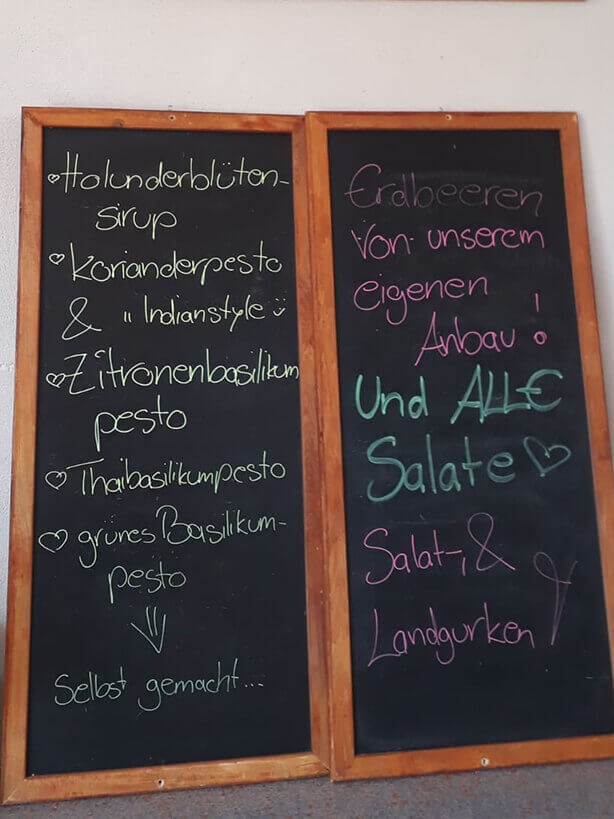 Holunderblüten-
sirup
Korianderpesto
& "Indianstyle"
Zitronenbasilikum
pesto
Thaibasilikumpesto
grünes Basilikum-
pesto
Selbst gemacht...
Erdbeeren
Von unserem
eigenen
Anbau!
Und ALL€
Salate
Salat-, &
Landgurken